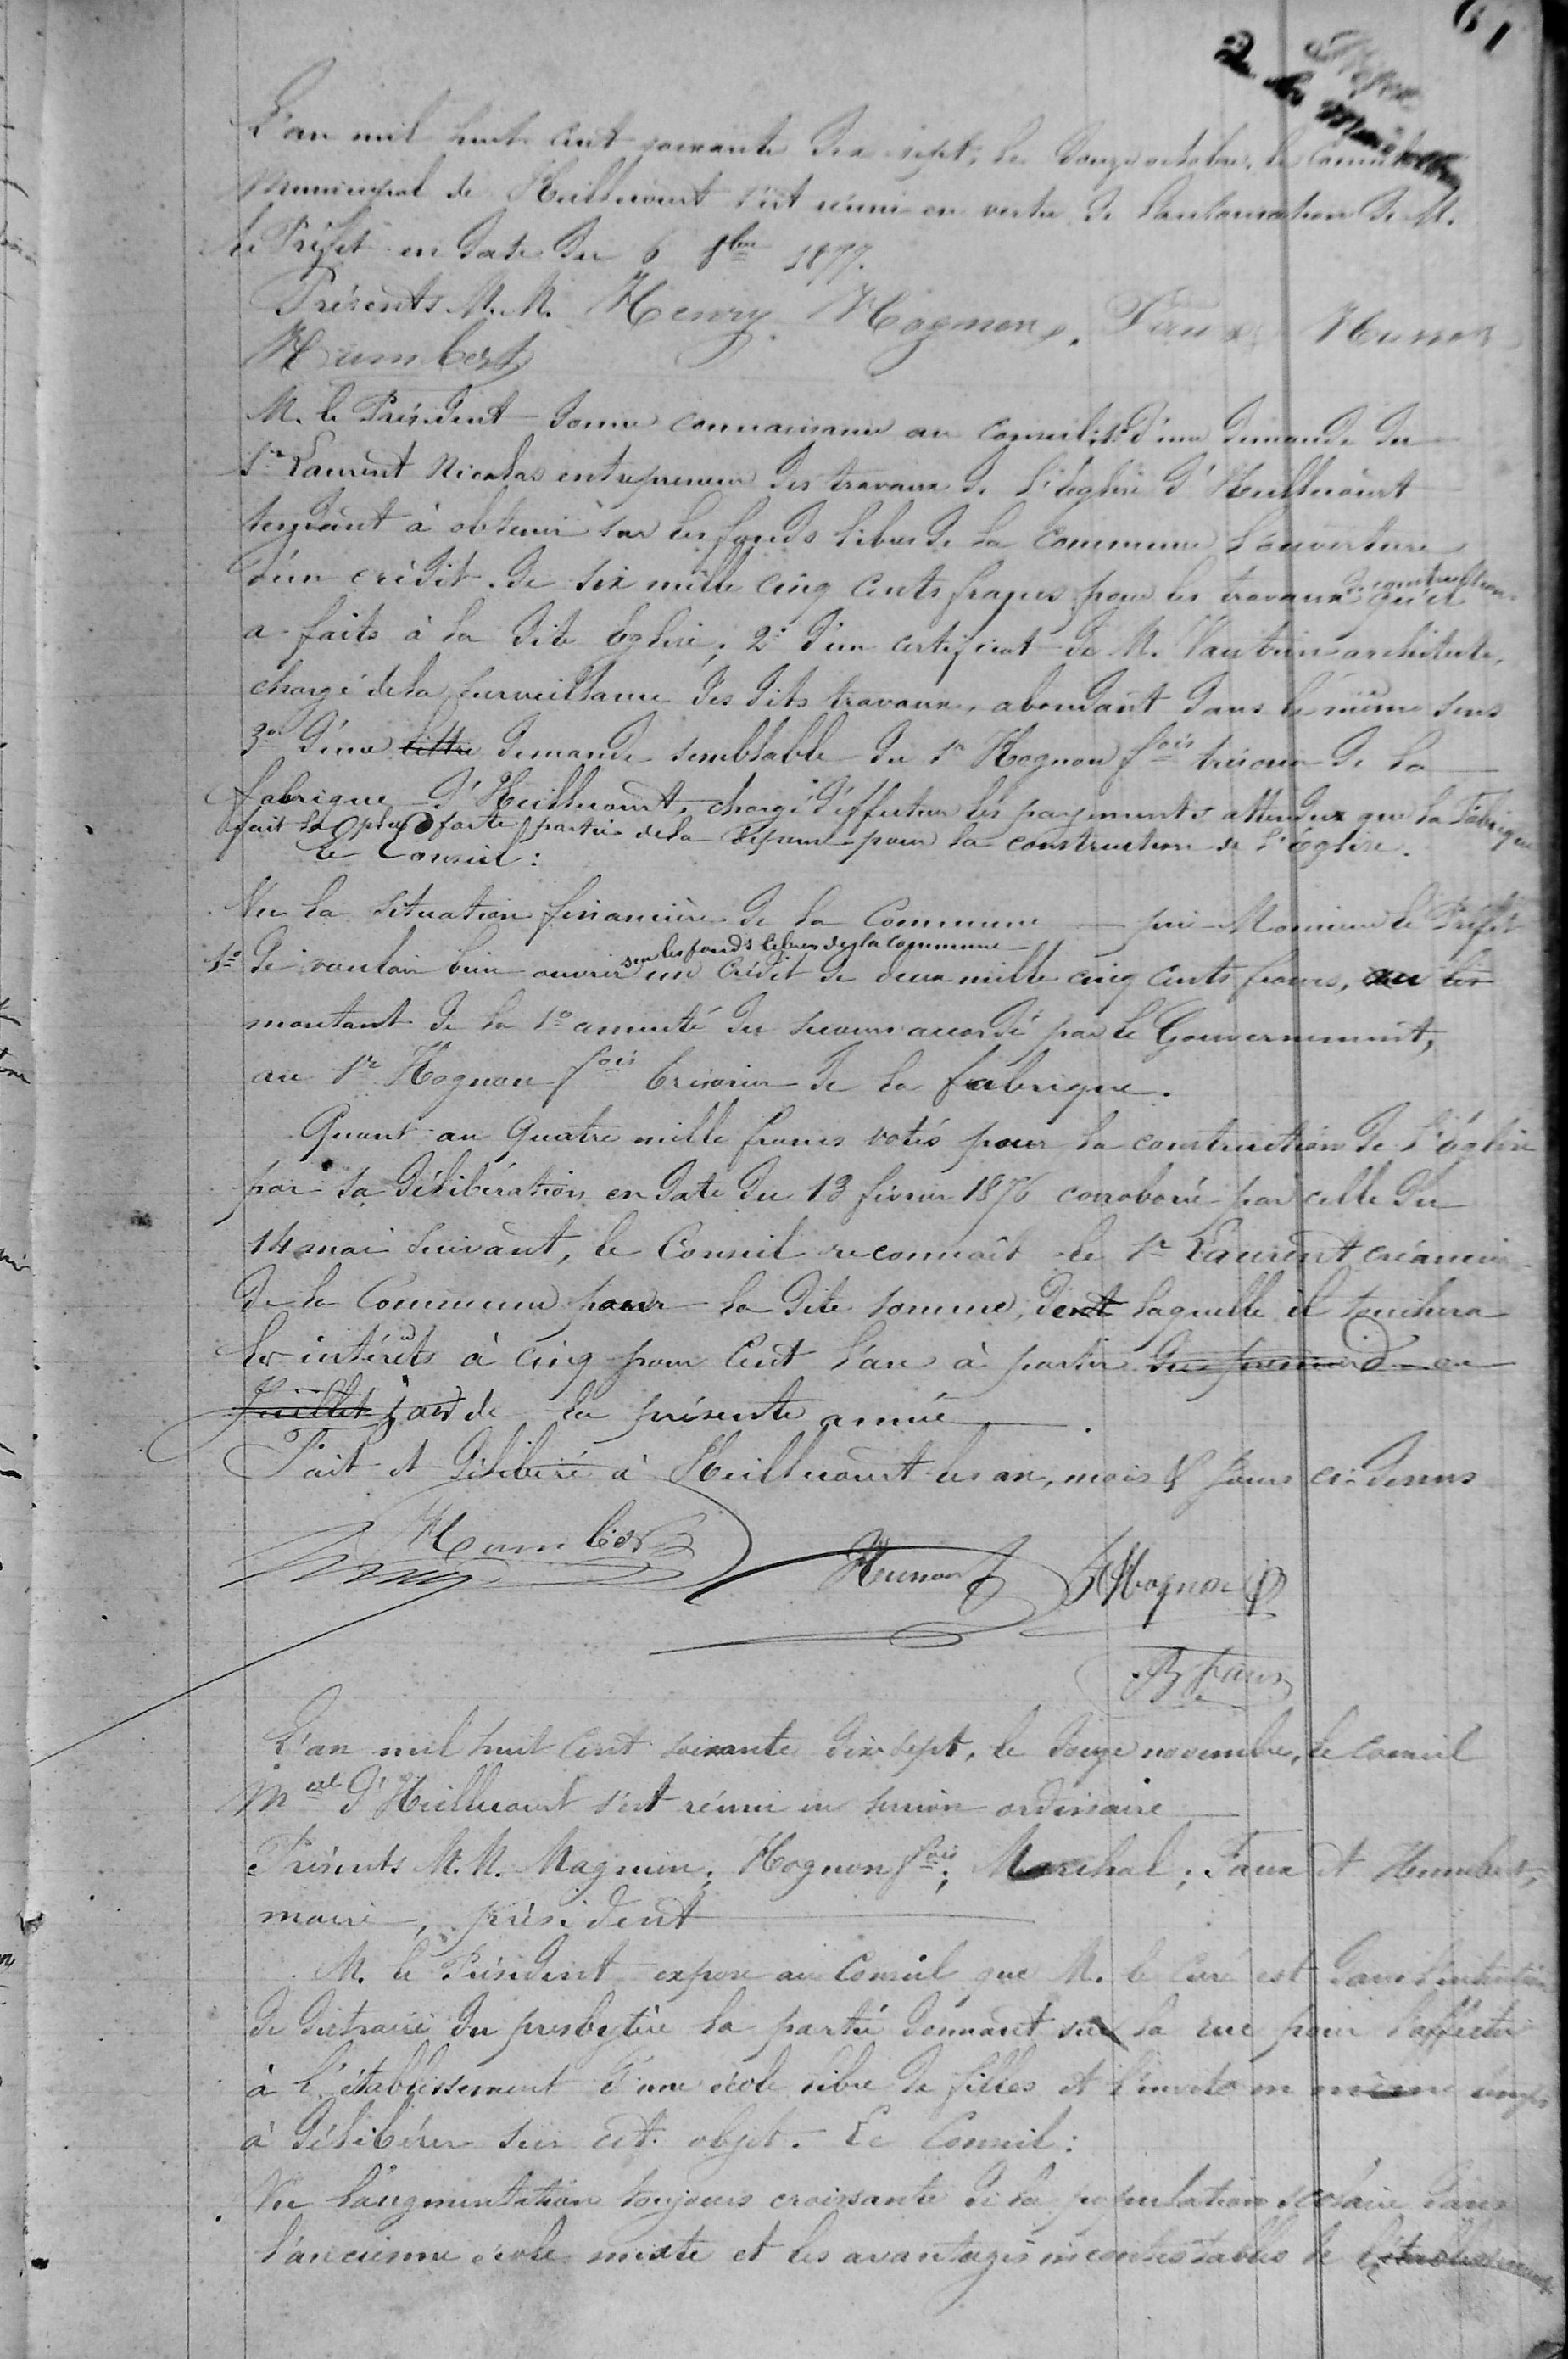 61
L'an mil huit cent soixante dix sept, le douze octobre, le Conseil
Municipal de Heillecourt s'est réuni en vertu de l'autorisation de M.
le Préfet en date du 6 8bre 1877.
Présents M.M. Henry. Hognon, Faux Husson
Humbert
M. le Président donne connaissance au Conseil; 1° d'une demande du
Sr Laurent Nicolas entrepreneur des travaux de l'église d'Heillecourt
tendant à obtenir sur les fonds libres de la Commune l'ouverture
d'un crédit de six mille cinq cents francs pour les travaux de construction qu'il
a faits à la dite église; 2° d'un certificat de M. Vautrin architecte,
chargé de la surveillance des dits travaux, abondant dans le même sens
3° d'une lettre demande semblable du Sr Hognon fois trésorier de la
fabrique d'Heillecourt, chargé d'effectuer les payements attendu que la Fabrique
fait la plus forte partie de la dépense pour la construction de l'église.
Le Conseil:
Vu la situation financière de la Commune prie Monsieur le Préfet
1° de vouloir bien ouvrir sur les fonds libres de la commune un crédit de deux mille cinq cents francs,
montant de la 1° annuité du secours accordé par le Gouvernement,
au Sr Hognon fois trésorier de la fabrique.
Quant au quatre mille francs votés pour la construction de l'église
par sa délibération en date du 13 février 1876 corroboré par celle du
14 mai suivant, le Conseil reconnaît le Sr Laurent créancier
de la Commune pour la dite somme, dont laquelle il touchera
les intérêts à cinq pour cent l'an à partir du premier
Juillet de la présente année.
Fait et délibéré à Heillecourt les an, mois & jours ci-dessus
Humbert
Henry Husson Hognon
Faux
L'an mil huit cent soixante dix sept, le douze novembre, le conseil
Mcal d'Heillecourt s'est réuni en session ordinaire
Présents M.M. Magnien; Hognon fois; Marchal; Faux et Humbert,
maire, président
M. le Président expose au Conseil que M. le Curé est dans l'intention
de distraire du presbytère la partie donnant sur la rue pour l'affecter
à l'établissement d'une école libre de filles et l'invite en même temps
à délibérer sur cet objet. Le Conseil:
Vu l'augmentation toujours croissante de la population scolaire dans
l'ancienne école mixte et les avantages incontestables de l'établissement